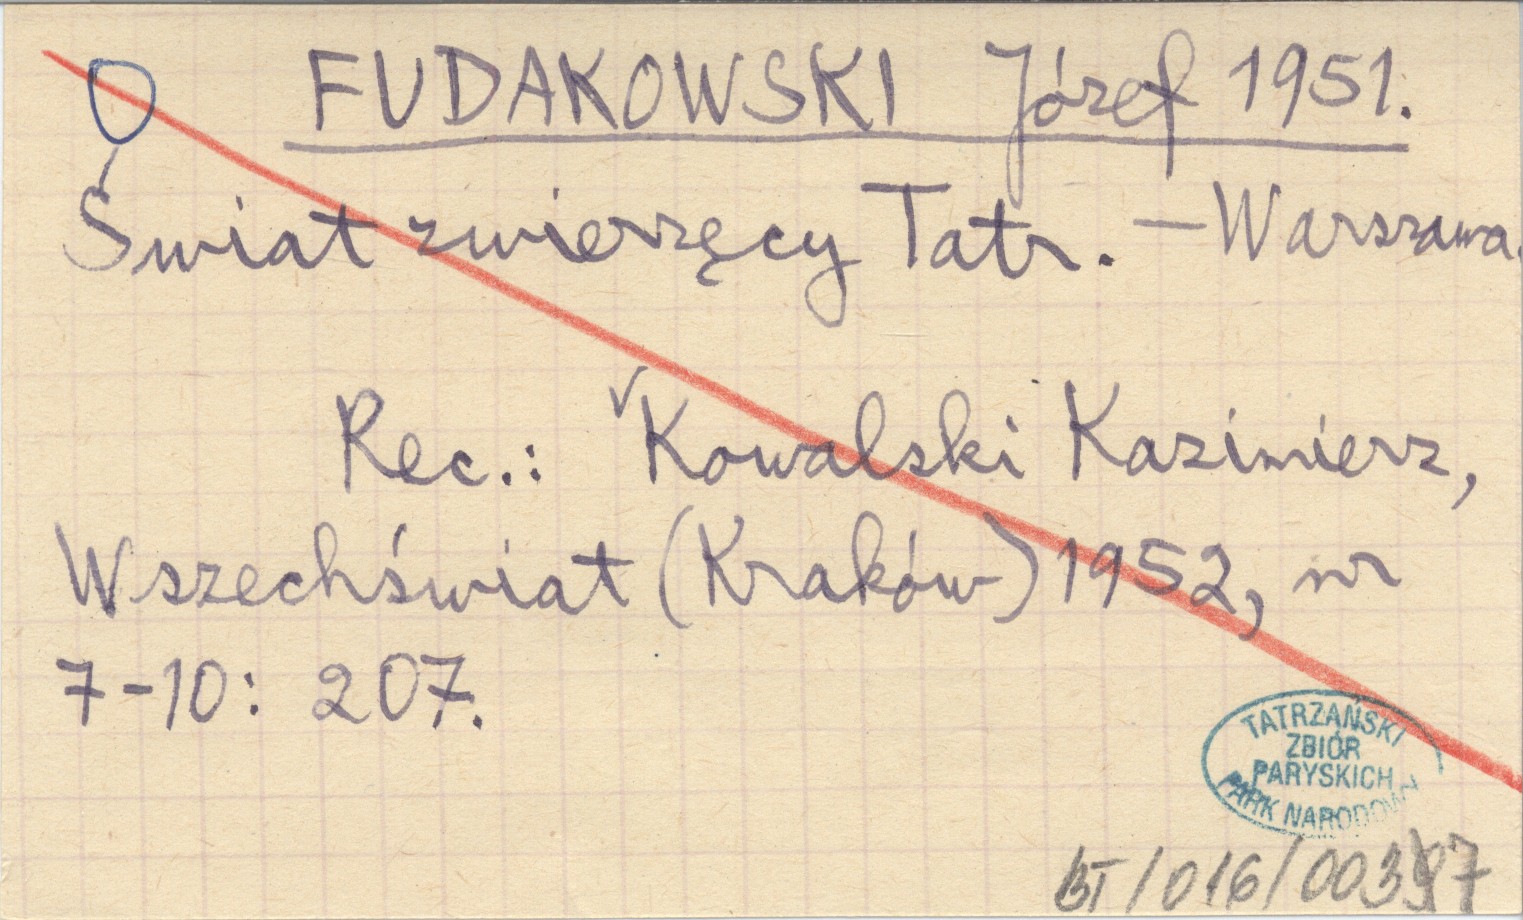 FUDAKOWSKI Józef 1951.
Świat zwierzęcy Tatr. — Warszawa.
Rec.: Kowalski Kazimierz,
Wszechświat (Kraków) 1952, nr
7-10: 207.
TATRZAŃSKI
ZBIÓR
PARYSKICH
PARK NARODOWY
BT/016/00397